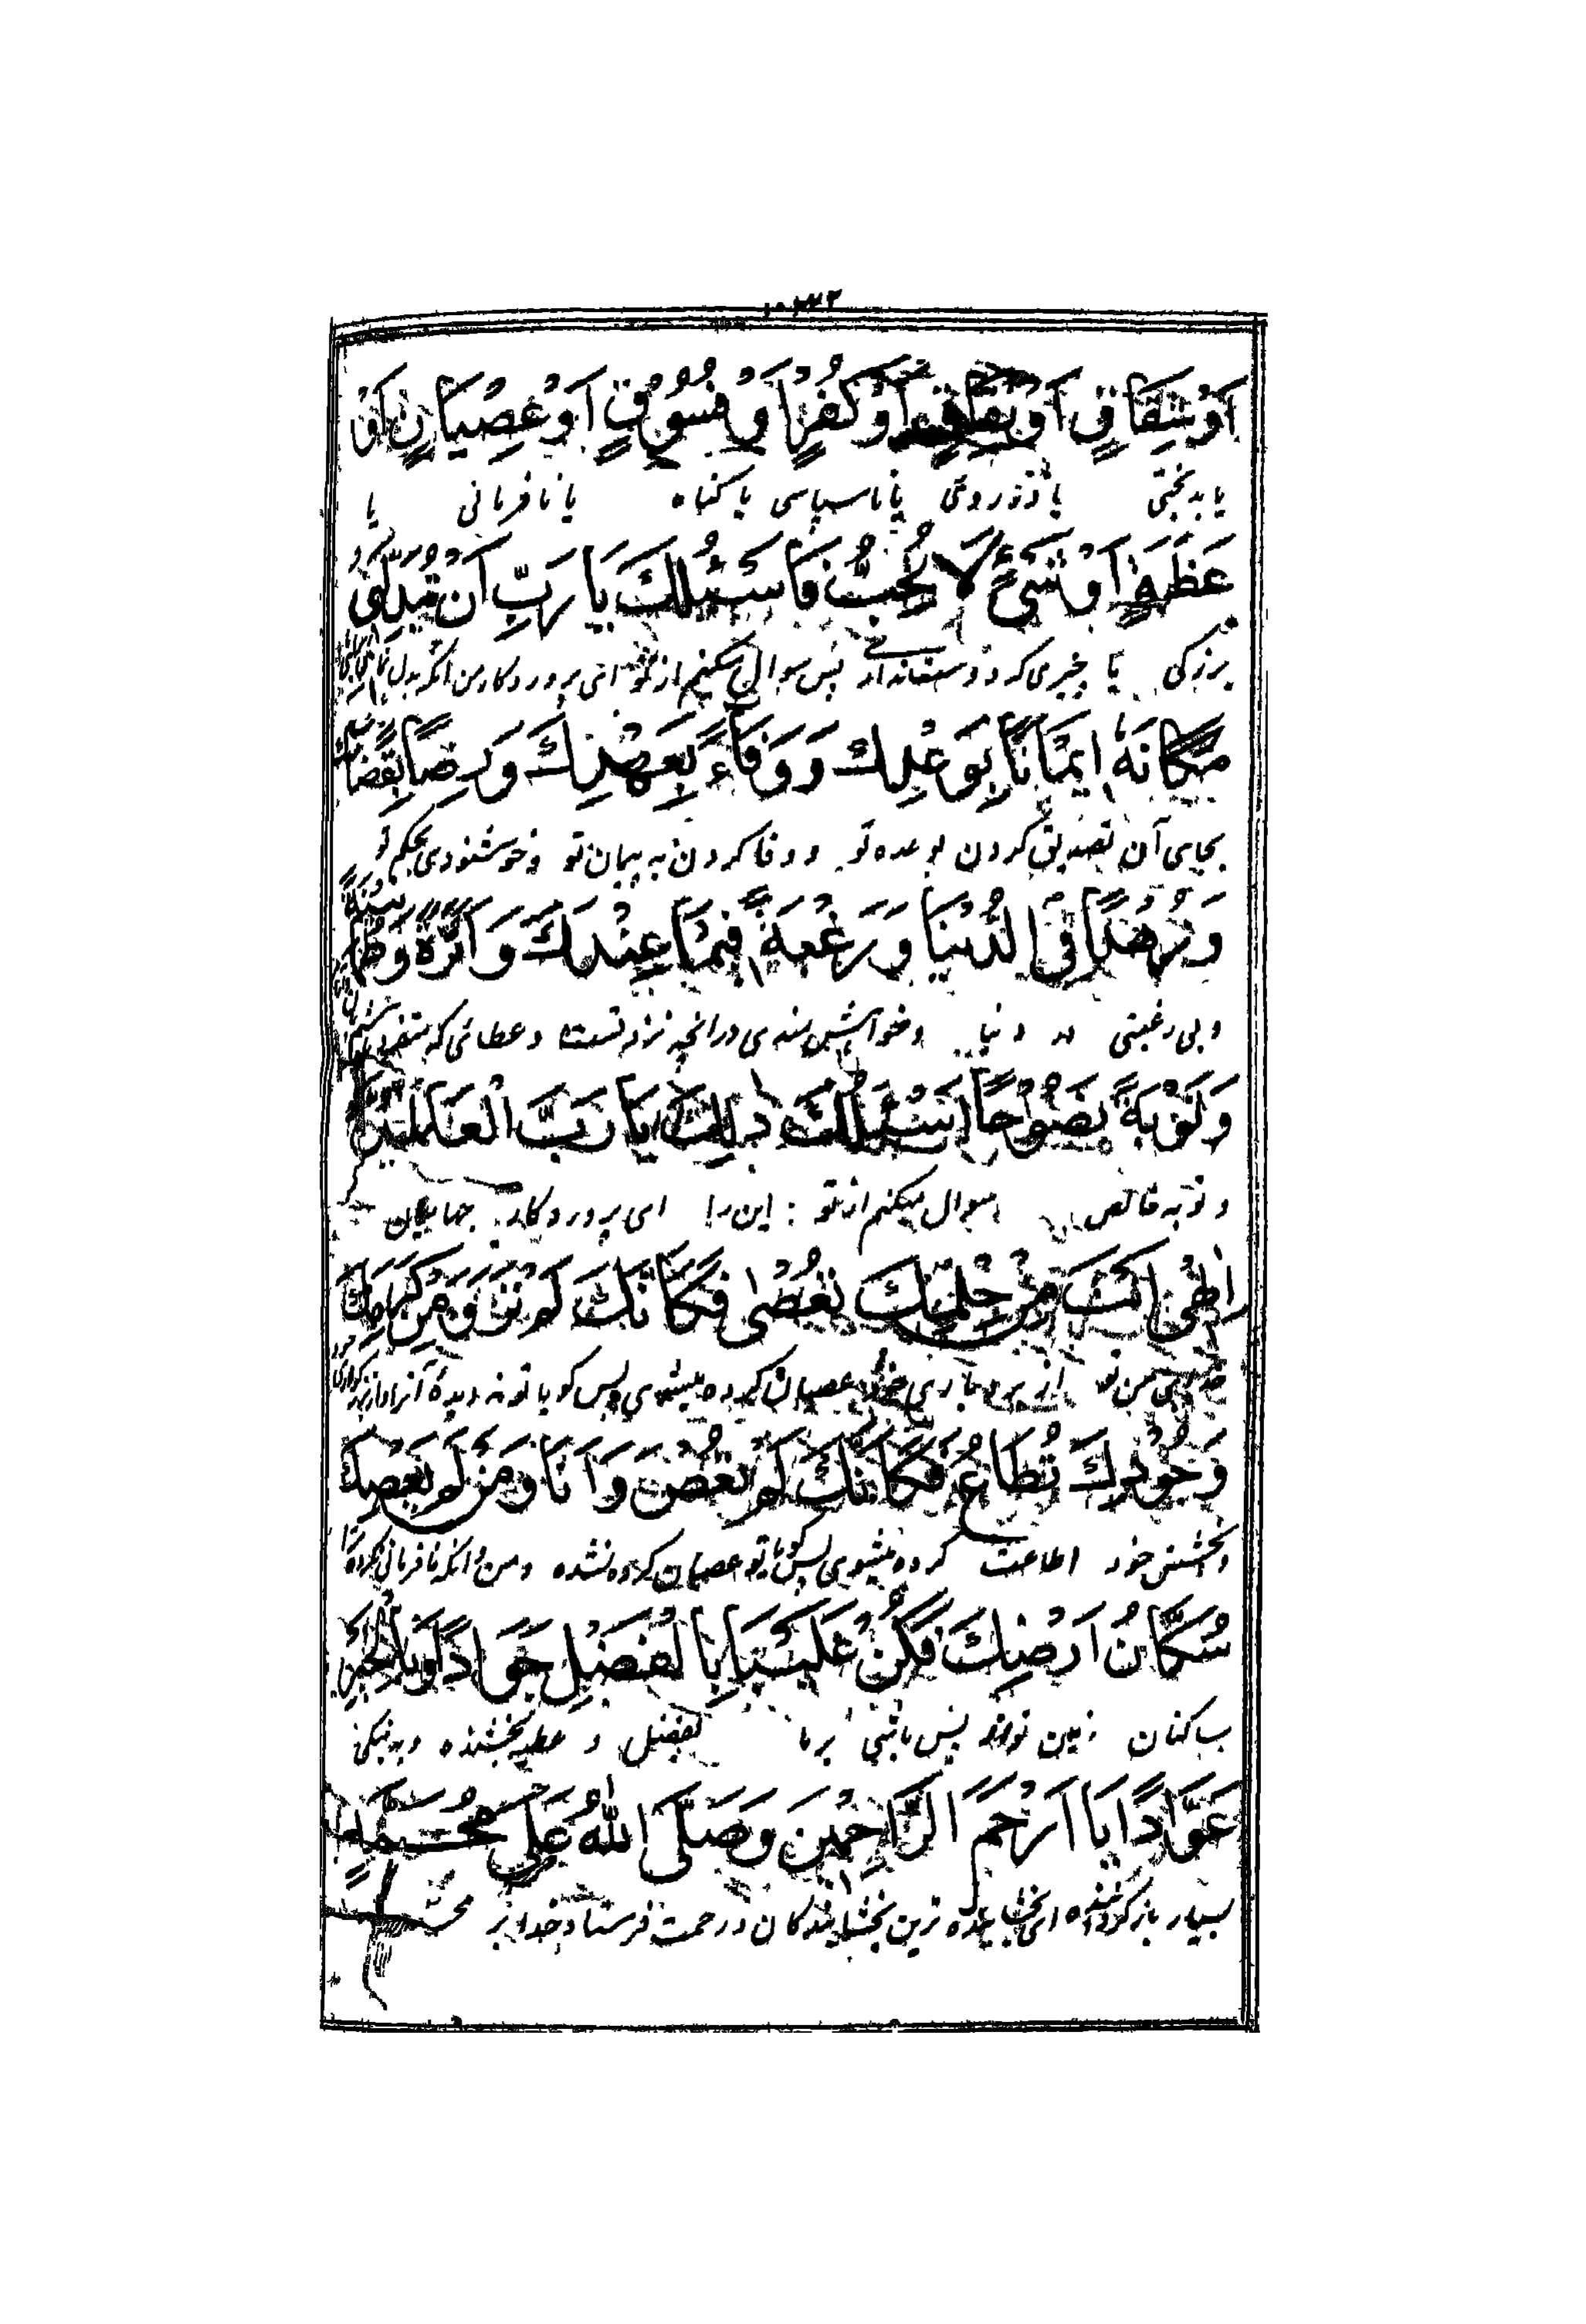 اَوْ شِقَاقٍ اَوْ نِفَاقٍ اَوْ كُفْرٍ اَوْ فُسُوْقٍ اَوْ عِصْيَانٍ اَوْ
یا بدبختی یا دوروئی یا ناسپاسی یا گناه یا نافرمانی یا
عَظَمَةٍ اَوْ شَيْءٍ لَا تُحِبُّ فَاَسْئَلُكَ يَا رَبِّ اَنْ تُبَدِّلَنِيْ
بزرگی یا چیزی که دوست نداری پس سوال میکنم از تو ای پروردگار من آنکه بدل
مَكَانَهٗ اِيْمَانًا بِوَعْدِكَ وَ وَفَاءً بِعَهْدِكَ وَ رِضًا بِقَضَائِكَ
بجای آن تصدیق کردن بوعده تو و وفا کردن به پیمان تو و خوشنودی بحکم تو
وَ زُهْدًا فِي الدُّنْيَا وَ رَغْبَةً فِيْمَا عِنْدَكَ وَ اَثَرَةً وَ طُمَأْنِيْنَةً
و بی رغبتی در دنیا و خواهشمندی در انچه نزد تست و عطائی که
وَ تَوْبَةً نَصُوْحًا اَسْئَلُكَ ذٰلِكَ يَا رَبَّ الْعَالَمِيْنَ
و توبه خالص سوال میکنم از تو این را ای پروردگار جهانیان
اِلٰهِيْ اَنْتَ مِنْ حِلْمِكَ تُعْصٰى فَكَاَنَّكَ لَمْ تَرَ وَ مِنْ كَرَمِكَ
خدای من تو از بردباری خود عصیان کرده میشوی پس گویا تو نه دیدهٔ آنرا و از
وَ جُوْدِكَ تُطَاعُ فَكَاَنَّكَ لَمْ تُعْصَ وَ اَنَا وَ مَنْ لَمْ يَعْصِكَ
و بخشش خود اطاعت کرده میشوی پس گویا تو عصیان کرده نشده و من و انکه نافرمانی نکرده
سُكَّانُ اَرْضِكَ فَكُنْ عَلَيْنَا بِالْفَضْلِ جَوَادًا وَ بِالْخَيْرِ
ساکنان زمین تواند پس باش بر ما بفضل و عطیه بخشنده و به نیکی
عَوَّادًا يَا اَرْحَمَ الرَّاحِمِيْنَ وَ صَلَّى اللّٰهُ عَلٰى مُحَمَّدٍ
بسیار بازگرداننده ای بخشاینده ترین بخشایندگان و رحمت فرستاد خدا بر محمد